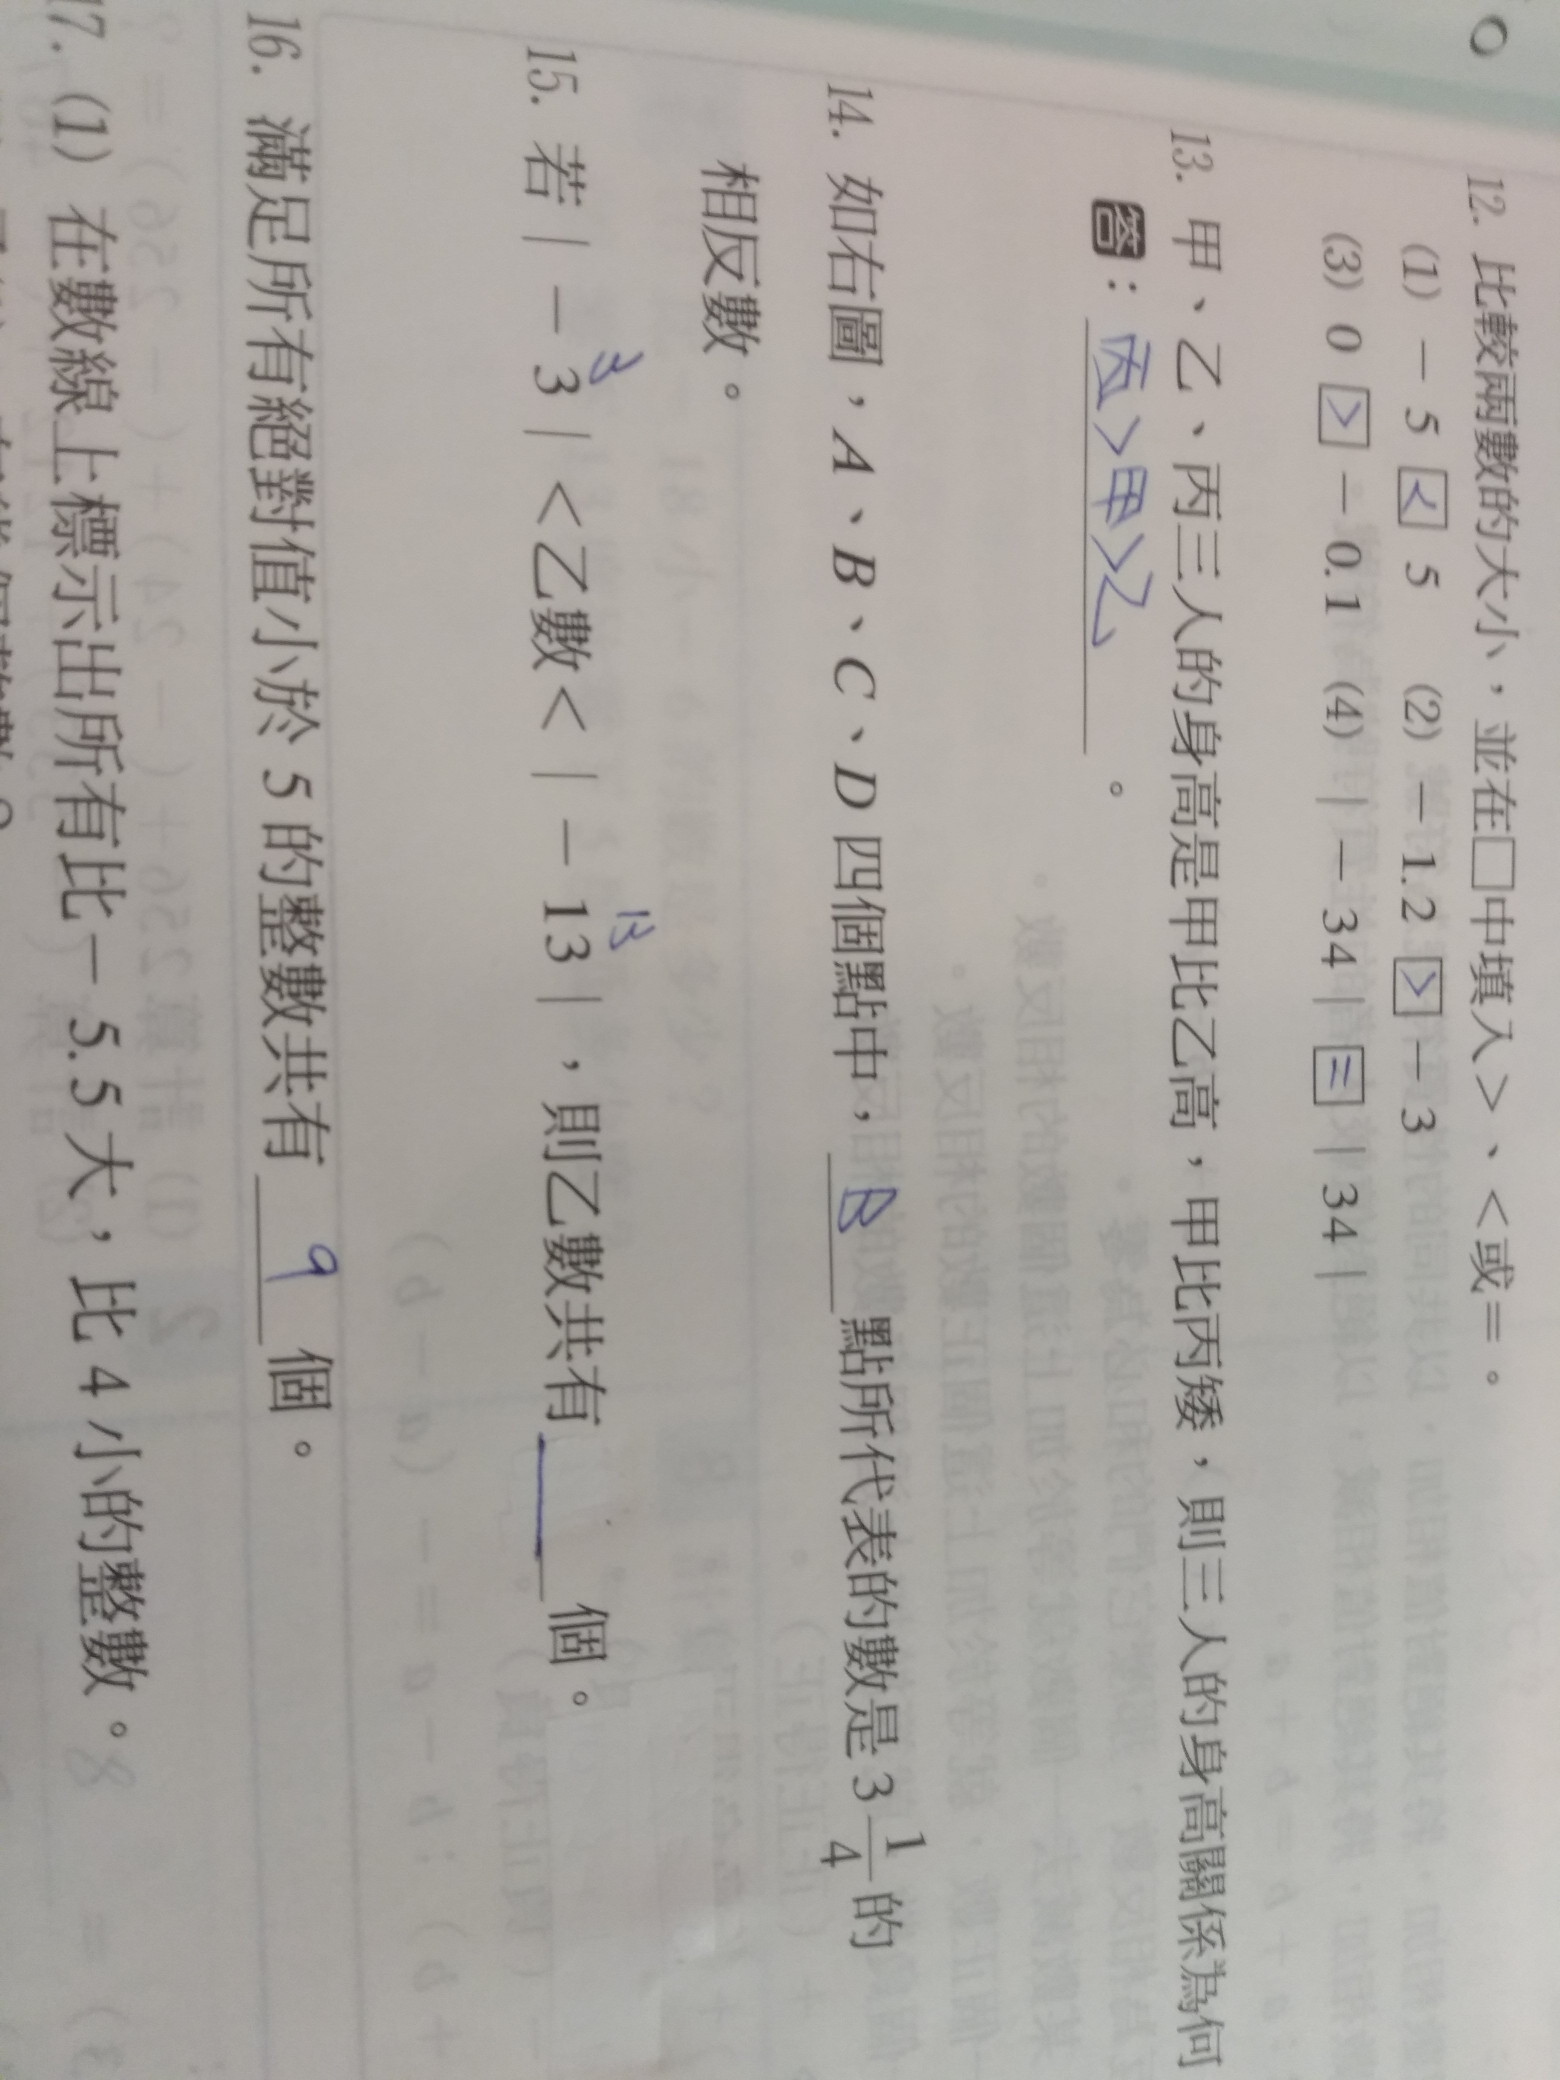 12. 比較兩數的大小，並在□中填入＞、＜或＝。
(1) －5 ＜ 5 (2) －1.2 ＞ －3
(3) 0 ＞ －0.1 (4) |－34| ＝ |34|
13. 甲、乙、丙三人的身高是甲比乙高，甲比丙矮，則三人的身高關係為何
答：丙＞甲＞乙。
14. 如右圖，A、B、C、D 四個點中，B 點所代表的數是 3 1/4 的
相反數。
3 13
15. 若 |－3|＜乙數＜|－13|，則乙數共有 ___ 個。
16. 滿足所有絕對值小於 5 的整數共有 9 個。
17. (1) 在數線上標示出所有比－5.5 大，比 4 小的整數。